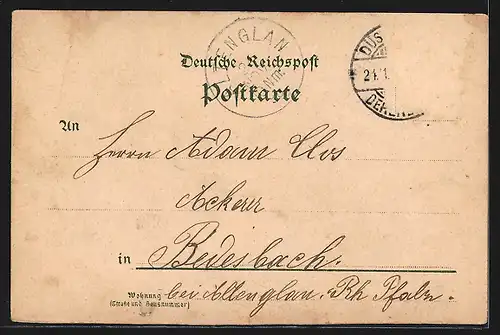 LTENGLAN
DÜS
21.1
DEREND
Deutsche Reichspost
Postkarte
An
Herrn Adam Clos
Ackerer
in Bedesbach.
Wohnung
(Straße und Hausnummer)
bei Altenglan. Rh Pfalz.